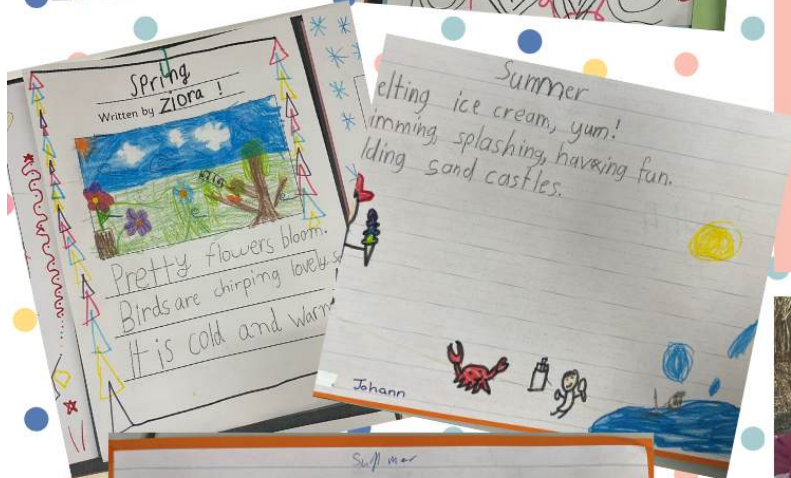 Spring
Written by Ziora !
Pretty flowers bloom.
Birds are chirping lovely
It is cold and
Summer
elting ice cream, yum!
imming, splashing, having fun.
lding sand castles.
Johann
Summer